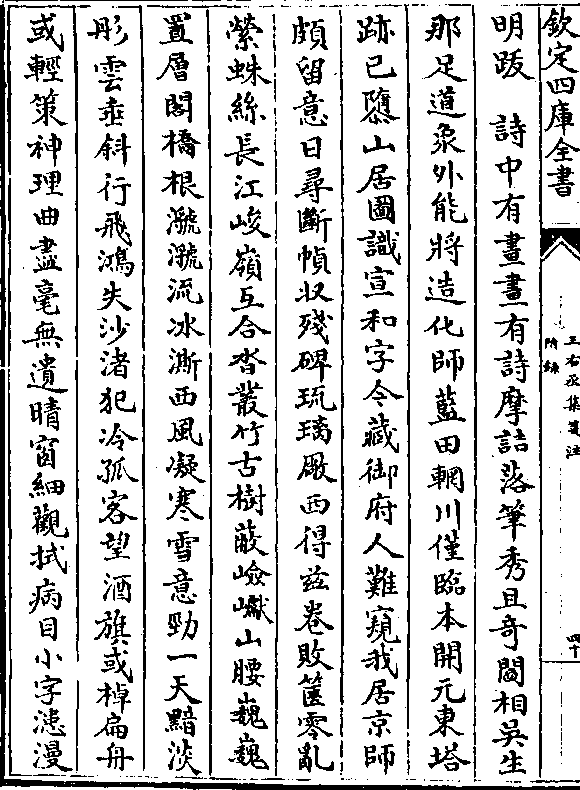 欽定四庫全書
王右丞集箋注
附錄
四十
明跋　詩中有畫畫有詩摩詰落筆秀且奇閻相吳生
那足道象外能將造化師藍田輞川僅臨本開元東塔
跡已隳山居圖識宣和字今藏御府人難窺我居京師
頗留意日尋斷幀收殘碑琉璃厰西得兹卷敗篋零亂
縈蛛絲長江峻嶺互合沓叢竹古樹蔽嶮巘山腰巍巍
置層閣橋根㶁㶁流冰澌西風凝寒雪意勁一天黯淡
彤雲垂斜行飛鴻失沙渚犯冷孤客望酒旗或棹扁舟
或輕策神理曲盡毫無遺晴窗細觀拭病目小字漶漫